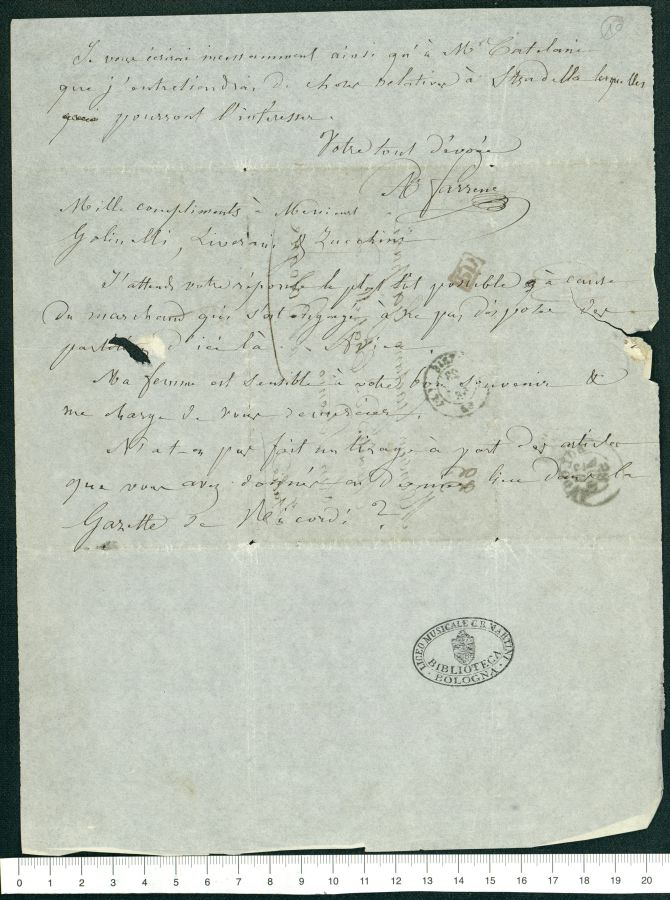 10
Je vous écrirai incessamment ainsi qu'à Mr Catelani
que j'entretiendrai de choses relatives à Stradella lesquelles
pourront l'intéresser.
Votre tout dévoué
A. Farrenc
Mille compliments à Messieurs
Golinelli, Liverani & Zucchini
J'attends votre réponse le plus tôt possible à cause
du marchand qui s'est engagé à ne pas disposer des
d'ici là.
Ma femme est sensible à votre bon souvenir &
me charge de vous remercier.
N'a-t-on pas fait un tirage à part des articles
que vous avez donnés en dernier lieu dans la
Gazette de Ricordi ?
PD
LICEO MUSICALE G.B. MARTINI
BIBLIOTECA
BOLOGNA
0 1 2 3 4 5 6 7 8 9 10 11 12 13 14 15 16 17 18 19 20